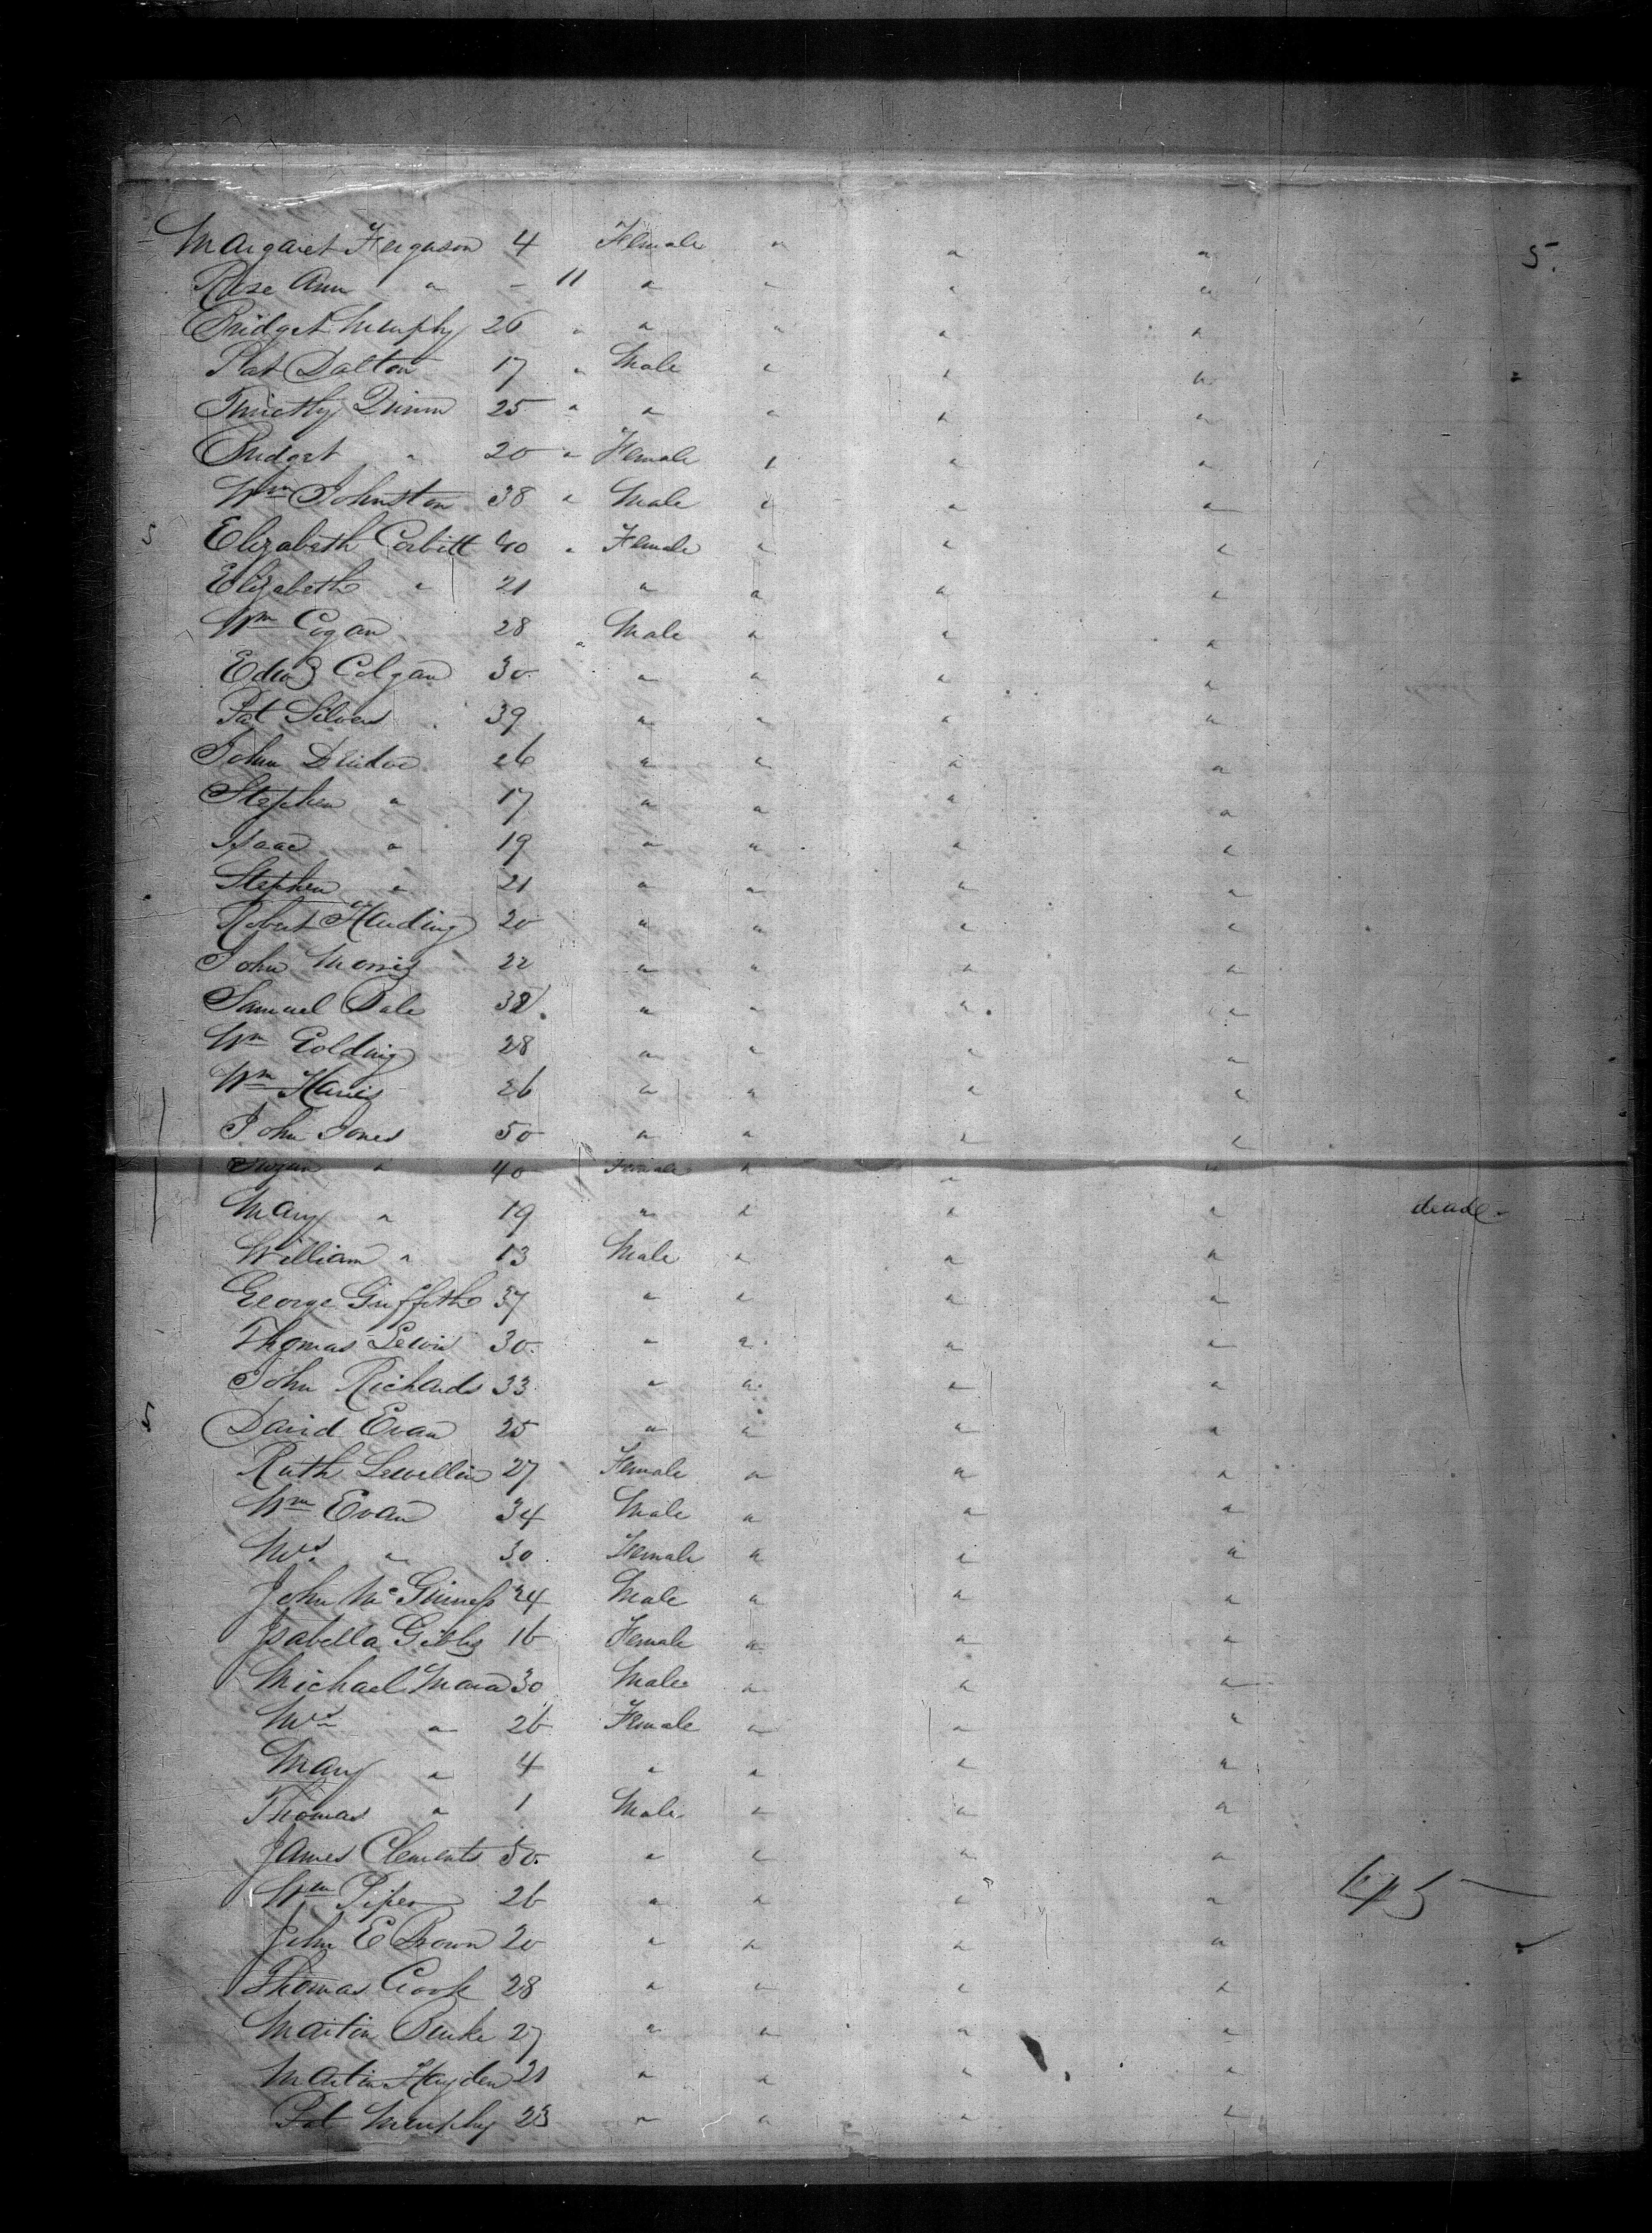 Margaret Ferguson 4 Female " " " 5.
Rose Ann " - 11 " " " "
Bridget Murphy 26 " " " " "
Pat Dalton 17 " Male " " "
Timothy Quinn 25 " " " " "
Bridget " 20 " Female " " "
Wm Johnston 38 " Male " " "
Elizabeth Corbitt 40 " Female " " "
Elizabeth " 21 " " " "
Wm Cogan 28 " Male " " "
Edwd Colgan 30 " " " "
Pat Silvers 39 " " " "
John 26 " " " "
Stephen " 17 " " " "
Isaac " 19 " " " "
Stephen " 21 " " " "
Robert Harding 20 " " " "
John Morris 22 " " " "
Samuel Bale 38 " " " "
Wm Golding 28 " " " "
Wm Harris 26 " " " "
John Jones 50 " " " "
Susan " 40 Female " " "
Mary " 19 " " " "
William " 13 Male " " "
George Griffith 37 " " " "
Thomas Lewis 30 " " " "
John Richards 33 " " " "
David Evan 25 " " " "
Ruth Lewellin 27 Female " " "
Wm Evan 34 Male " " "
Mrs " 30 Female " " "
John McGuiness 24 Male " " "
Isabella Gibbs 16 Female " " "
Michael Mara 30 Male " " "
Mrs " 26 Female " " "
Mary " 4 " " " "
Thomas " 1 Male " " "
James Clements 50 " " " "
Wm Piper 26 " " " "
John E Brown 20 " " " "
Thomas Cook 28 " " " "
Martin Burke 27 " " " "
Martin Hayden 21 " " " "
Pat Murphy 23 " " " "